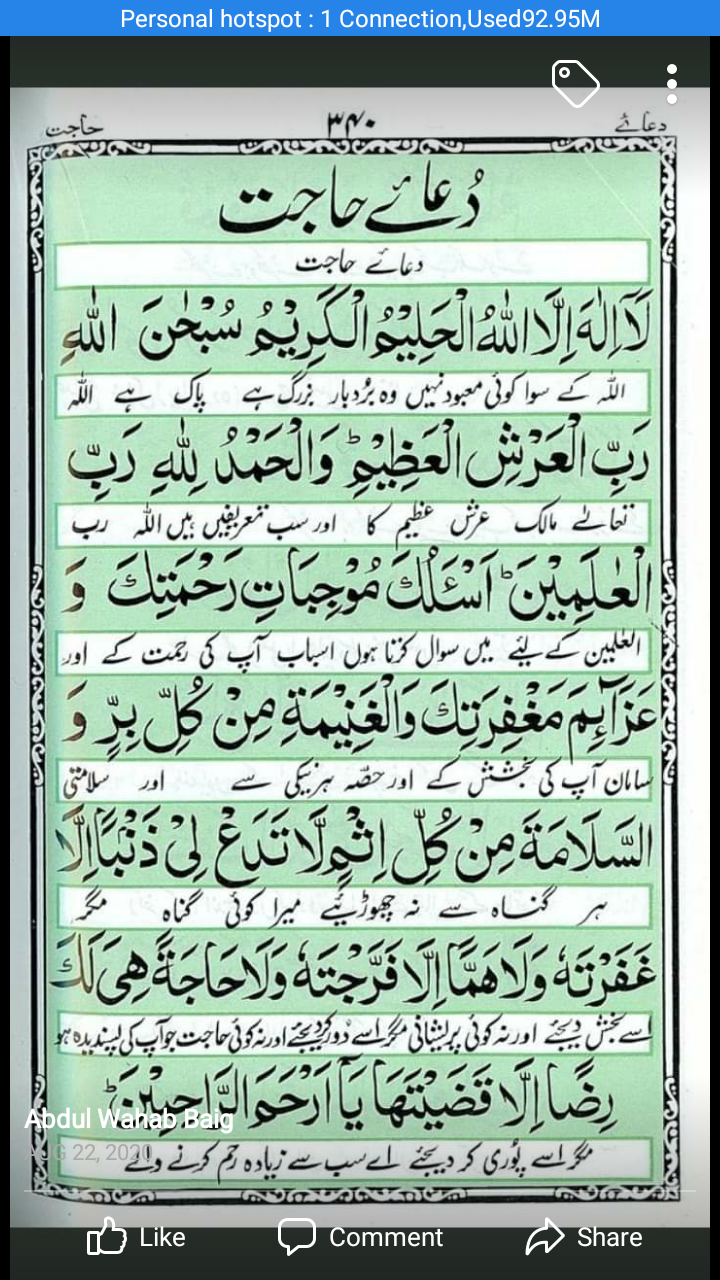 Personal hotspot : 1 Connection,Used92.95M
دعائے ۳۴۰ حاجت
دُعائے حاجت
دعائے حاجت
لَآ اِلٰهَ اِلَّا اللّٰهُ الْحَلِيْمُ الْكَرِيْمُ سُبْحٰنَ اللّٰهِ
اللّٰہ کے سوا کوئی معبود نہیں وہ بُردبار بزرگ ہے پاک ہے اللّٰہ
رَبِّ الْعَرْشِ الْعَظِيْمِ ؕ وَالْحَمْدُ لِلّٰهِ رَبِّ
تعالےٰ مالک عرش عظیم کا اور سب تعریفیں ہیں اللّٰہ رب
الْعٰلَمِيْنَ ؕ اَسْئَلُكَ مُوْجِبَاتِ رَحْمَتِكَ وَ
العٰلمین کے لیئے میں سوال کرتا ہوں اسباب آپ کی رحمت کے اور
عَزَآئِمَ مَغْفِرَتِكَ وَالْغَنِيْمَةَ مِنْ كُلِّ بِرٍّ وَ
سامان آپ کی بخشش کے اور حصّہ ہر نیکی سے اور سلامتی
السَّلَامَةَ مِنْ كُلِّ اِثْمٍ لَّا تَدَعْ لِىْ ذَنْۢبًا اِلَّا
ہر گناہ سے نہ چھوڑیئے میرا کوئی گناہ مگر
غَفَرْتَهٗ وَلَا هَمًّا اِلَّا فَرَّجْتَهٗ وَلَا حَاجَةً هِىَ لَكَ
اسے بخش دیجئے اور نہ کوئی پریشانی مگر اسے دُور کردیجئے اور نہ کوئی حاجت جو آپ کی پسندیدہ ہو
رِضًا اِلَّا قَضَيْتَهَا يَآ اَرْحَمَ الرَّاحِمِيْنَ ؕ
Abdul Wahab Baig
مگر اسے پُوری کر دیجئے اے سب سے زیادہ رحم کرنے والے
AUG 22, 2020
Like Comment Share